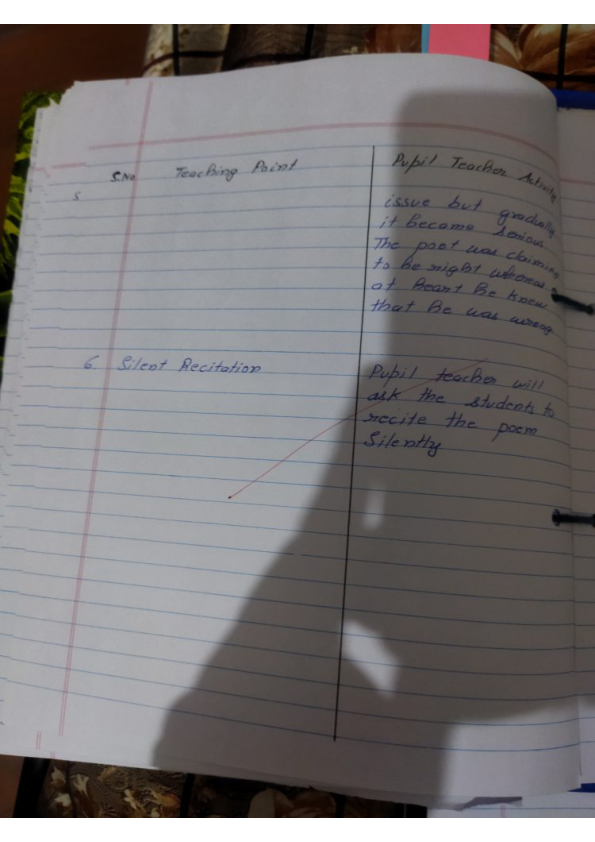 S.No Teaching Point Pupil Teacher Activity
5
issue but gradually
it became serious.
The poet was claiming
to be right whereas
at heart he knew
that he was wrong
6. Silent Recitation
Pupil teacher will
ask the students to
recite the poem
Silently